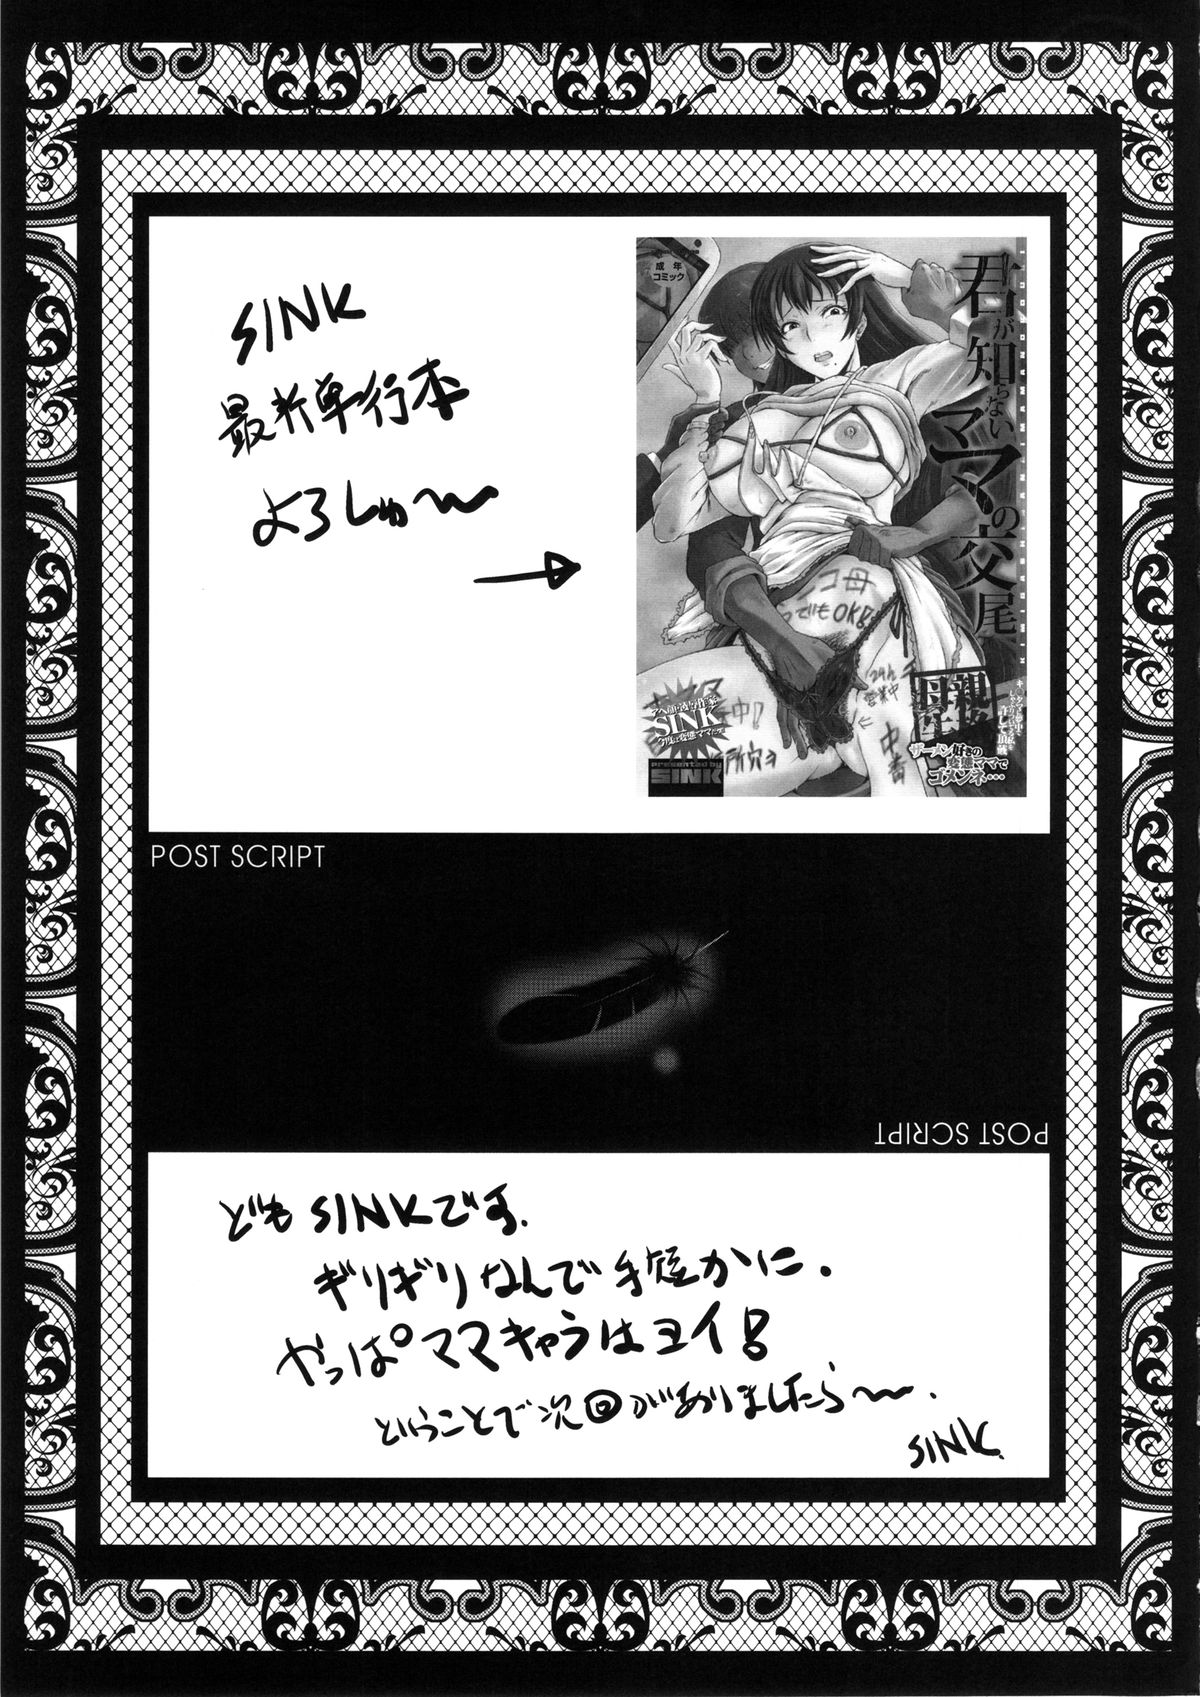 SINK
最新単行本
よろしゅ〜
→
成年
コミック
君が知らないママの交尾
コ母
でもOK!
24h
営業中
中毒
SINK
今度は変態ママだぞ
presented by
SINK
ザーメン好きの
変態ママで
ゴメンネ…
POST SCRIPT
POST SCRIPT
どもSINKです.
ギリギリなんで手短かに.
やっぱママキャラはヨイ!
ということで次回がありましたら〜.
SINK.